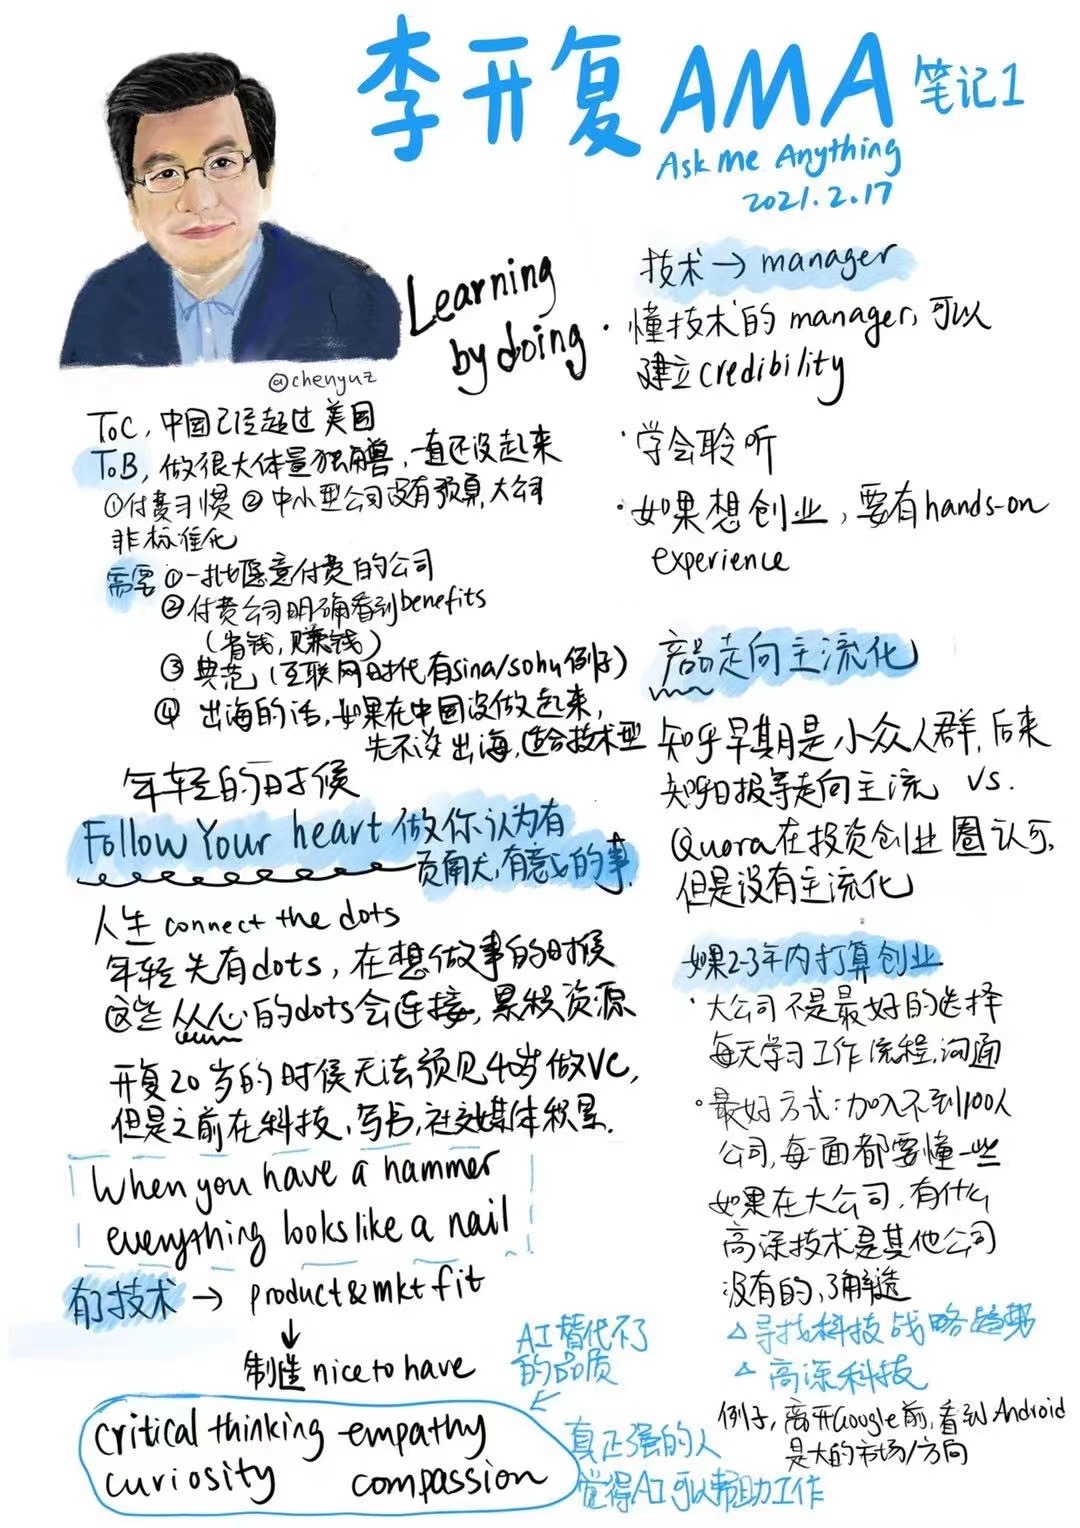 李开复 AMA 笔记1
Ask Me Anything
2021.2.17
Learning
by doing
@chenyuz
ToC, 中国已经超过美国
ToB, 做很大体量独角兽, 一直还没起来
①付费习惯 ②中小型公司没有预算, 大公司
非标准化
需要 ①一批愿意付费的公司
②付费公司明确看到benefits
(省钱, 赚钱)
③ 典范 (互联网时代有sina/sohu例子)
④ 出海的话, 如果在中国没做起来,
先不谈出海, 适合技术型
年轻的时候
Follow Your heart 做你认为有
贡献大, 有意义的事.
人生 connect the dots
年轻先有dots, 在想做事的时候
这些从心的dots会连接, 累积资源
开复20岁的时候无法预见40岁做VC,
但是之前在科技, 写书, 社交媒体积累.
When you have a hammer
everything looks like a nail
有了技术 → product & mkt fit
↓
制造 nice to have
AI替代不了
的品质
critical thinking empathy
curiosity compassion
真正强的人
觉得AI可以帮助工作
技术 → manager
· 懂技术的 manager, 可以
建立credibility
· 学会聆听
· 如果想创业, 要有hands-on
experience
产品走向主流化
知乎早期是小众人群, 后来
知乎日报等走向主流 vs.
Quora在投资创业圈认可,
但是没有主流化
如果2-3年内打算创业
· 大公司不是最好的选择
每天学习工作流程, 沟通
· 最好方式: 加入不到100人
公司, 每一面都要懂一些
如果在大公司, 有什么
高深技术是其他公司
没有的, 了解
△ 寻找科技战略趋势
△ 高深科技
例子, 离开Google前, 看到Android
是大的市场/方向